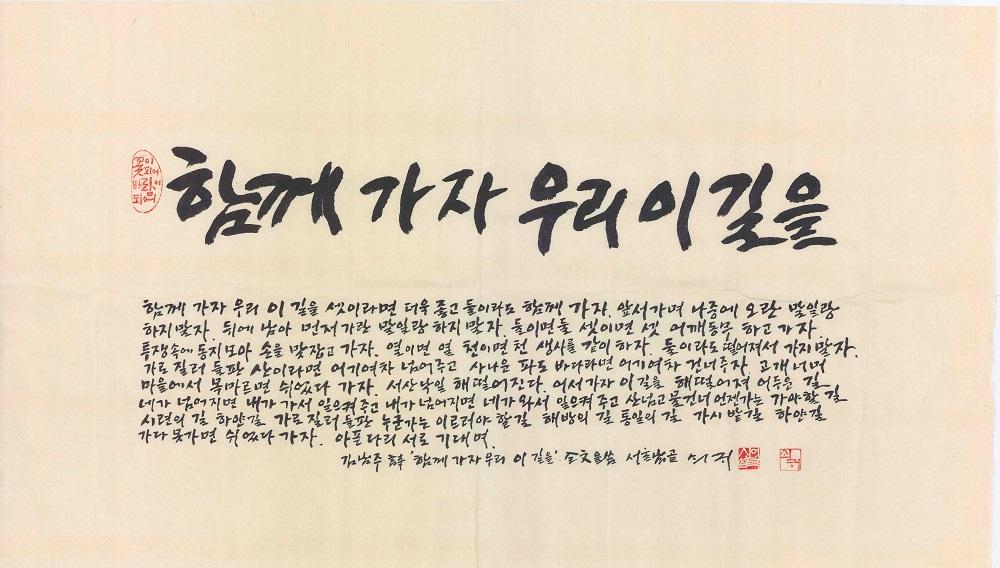 꽃이
되어
바람이
되어
함께 가자 우리 이 길을
함께 가자 우리 이 길을 셋이라면 더욱 좋고 둘이라도 함께 가자. 앞서가며 나중에 오란 말일랑
하지말자. 뒤에 남아 먼저 가란 말일랑 하지 말자. 둘이면 둘 셋이면 셋 어깨동무 하고 가자
투쟁속에 동지 모아 손을 맞잡고 가자. 열이면 열 천이면 천 생사를 같이 하자. 둘이라도 떨어져서 가지 말자.
가로 질러 들판 산이라면 어기여차 넘어주고 사나운 파도 바다라면 어기여차 건너주자. 고개 너머
마을에서 목마르면 쉬었다 가자. 서산낙일 해 떨어진다. 어서가자 이 길을 해 떨어져 어두운 길
네가 넘어지면 내가 가서 일으켜 주고 내가 넘어지면 네가 와서 일으켜 주고 산넘고 물건너 언젠가는 가야할 길
시련의 길 하얀길 가로 질러 들판 누군가는 이르러야 할 길 해방의 길 통일의 길 가시밭길 하얀길
가다 못가면 쉬었다 가자. 아픈 다리 서로 기대며.
김남주 詩 '함께 가자 우리 이 길을' 全文을 씀